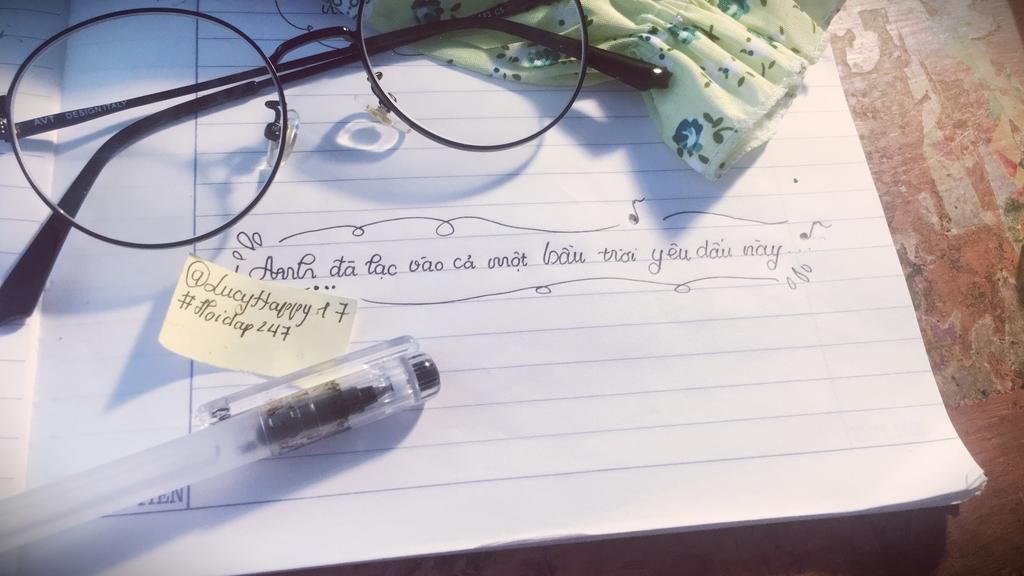 AVT DESIGN ITALY
Anh đã lạc vào cả một bầu trời yêu dấu này...
@LucyHappy17
#Hoidap247